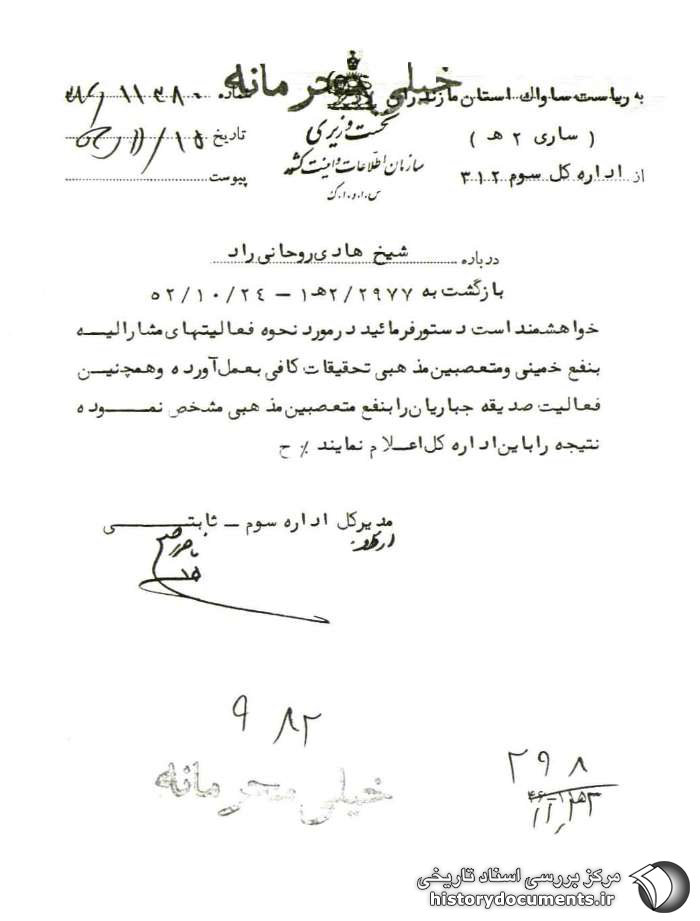 خیلی محرمانه
به ریاست ساواك استان مازندران
شماره ۳۱۲/۱۱۳۸۰
( ساری ۲ هـ )
نخست وزیری
تاریخ ۱۵/۱۱/
از اداره کل سوم ۳۱۲
سازمان اطلاعات و امنیت کشور
پیوست
س.ا.و.ا.ک
درباره شیخ هادی روحانی راد
بازگشت به ۲/۲۹۷۷هـ۱ – ۵۲/۱۰/۲۴
خواهشمند است دستور فرمائید در مورد نحوه فعالیتهای مشارالیه
بنفع خمینی و متعصبین مذهبی تحقیقات کافی بعمل آورده و همچنین
فعالیت صدیقه جباریان را بنفع متعصبین مذهبی مشخص نمــوده
نتیجه را باین اداره کل اعــلام نمایند ٪ ح
مدیر کل اداره سوم ــ ثابتــــی
از طرف
۱۵
۹ ۸۲
خیلی محرمانه
۲۹۸
مرکز بررسی اسناد تاریخی
historydocuments.ir